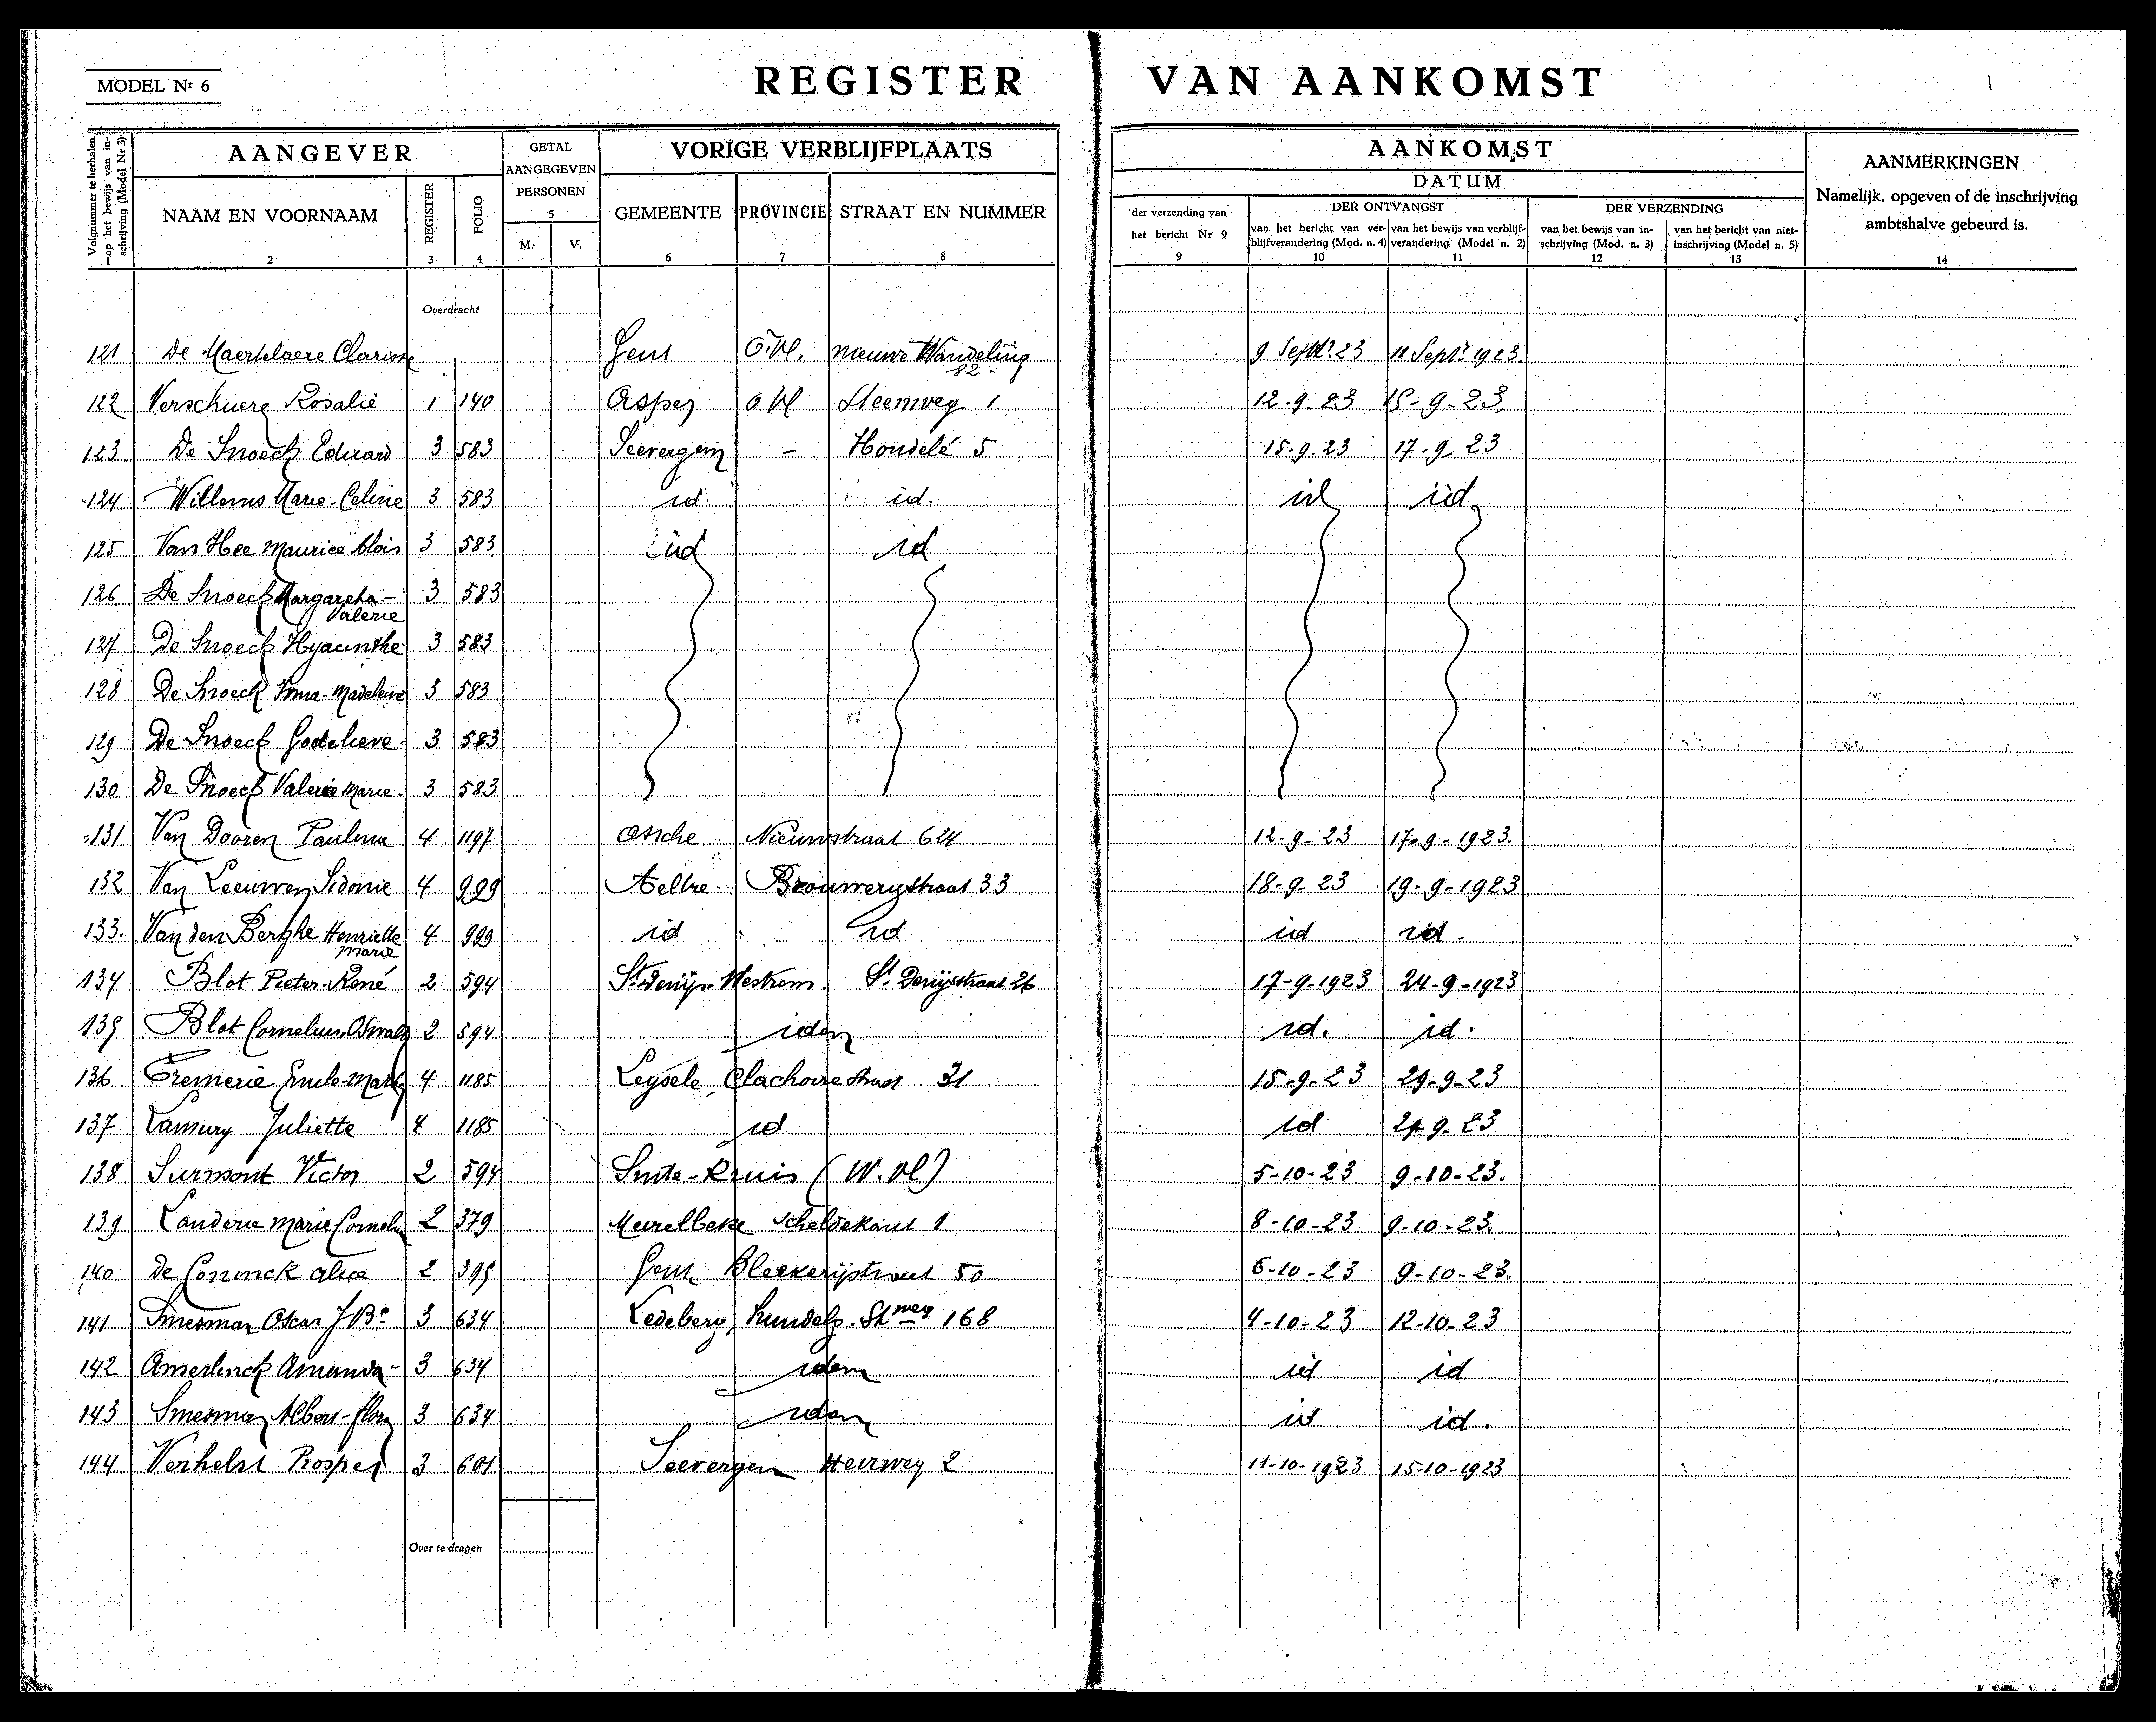 MODEL Nr 6
REGISTER VAN AANKOMST
Volgnummer te herhalen op het bewijs van inschrijving (Model Nr 3)
AANGEVER
GETAL AANGEGEVEN PERSONEN
VORIGE VERBLIJFPLAATS
AANKOMST
DATUM
AANMERKINGEN
Namelijk, opgeven of de inschrijving ambtshalve gebeurd is.
NAAM EN VOORNAAM
REGISTER
FOLIO
M. V.
GEMEENTE PROVINCIE STRAAT EN NUMMER
der verzending van het bericht Nr 9
DER ONTVANGST
van het bericht van verblijfverandering (Mod. n. 4)
van het bewijs van verblijfverandering (Model n. 2)
DER VERZENDING
van het bewijs van inschrijving (Mod. n. 3)
van het bericht van niet-inschrijving (Model n. 5)
1 2 3 4 5 6 7 8 9 10 11 12 13 14
Overdracht
121 De Maertelaere Clarisse Gent O.Vl. nieuwe Wandeling 82 9 Septr 23 11 Septr 1923.
122 Verschuere Rosalie 1 140 Asper O Vl Steenweg 1 12-9-23 15-9-23
123 De Snoeck Eduard 3 583 Seevergem - Hondelé 5 15-9-23 17-9-23
124 Willems Marie-Celine 3 583 id id. id id
125 Van Hee Maurice Aloïs 3 583 id id
126 De Snoeck Margareta-Valerie 3 583
127 De Snoeck Hyacinthe 3 583
128 De Snoeck Irma-Madeleine 3 583
129 De Snoeck Godelieve 3 583
130 De Snoeck Valerie Marie 3 583
131 Van Dooren Paulina 4 1197 Assche Nieuwstraat 624 12-9-23 17-9-1923.
132 Van Leeuwen Sidonie 4 999 Aeltre Brouwerijstraat 33 18-9-23 19-9-1923
133. Van den Berghe Henriette Marie 4 999 id id id id.
134 Blot Pieter-René 2 594 St Denijs-Westrem St Denijsstraat 26 17-9-1923 24-9-1923
135 Blot Cornelius-Oswald 2 594 idem id. id.
136 Fremerie Emile-Marie 4 1185 Leysele, 31 15-9-23 29-9-23
137 Lamury Juliette 4 1185 id id 29-9-23
138 Surmont Victor 2 594 Sinte-Kruis (W.Vl) 5-10-23 9-10-23.
139 Landerie Marie Cornelia 2 379 Meirelbeke Scheldekant 1 8-10-23 9-10-23.
140 De Coninck Alice 2 395 Gent Bleekerijstraat 50 6-10-23 9-10-23.
141 Smesman Oscar J Be 3 634 Ledeberg, Hundelg. Stweg 168 4-10-23 12-10-23
142 Amerlinck Amanda - 3 634 idem id id
143 Smesman Albert-Flor 3 634 idem id id.
144 Verhelst Prosper 3 601 Seevergem Heirweg 2 11-10-1923 15-10-1923
Over te dragen